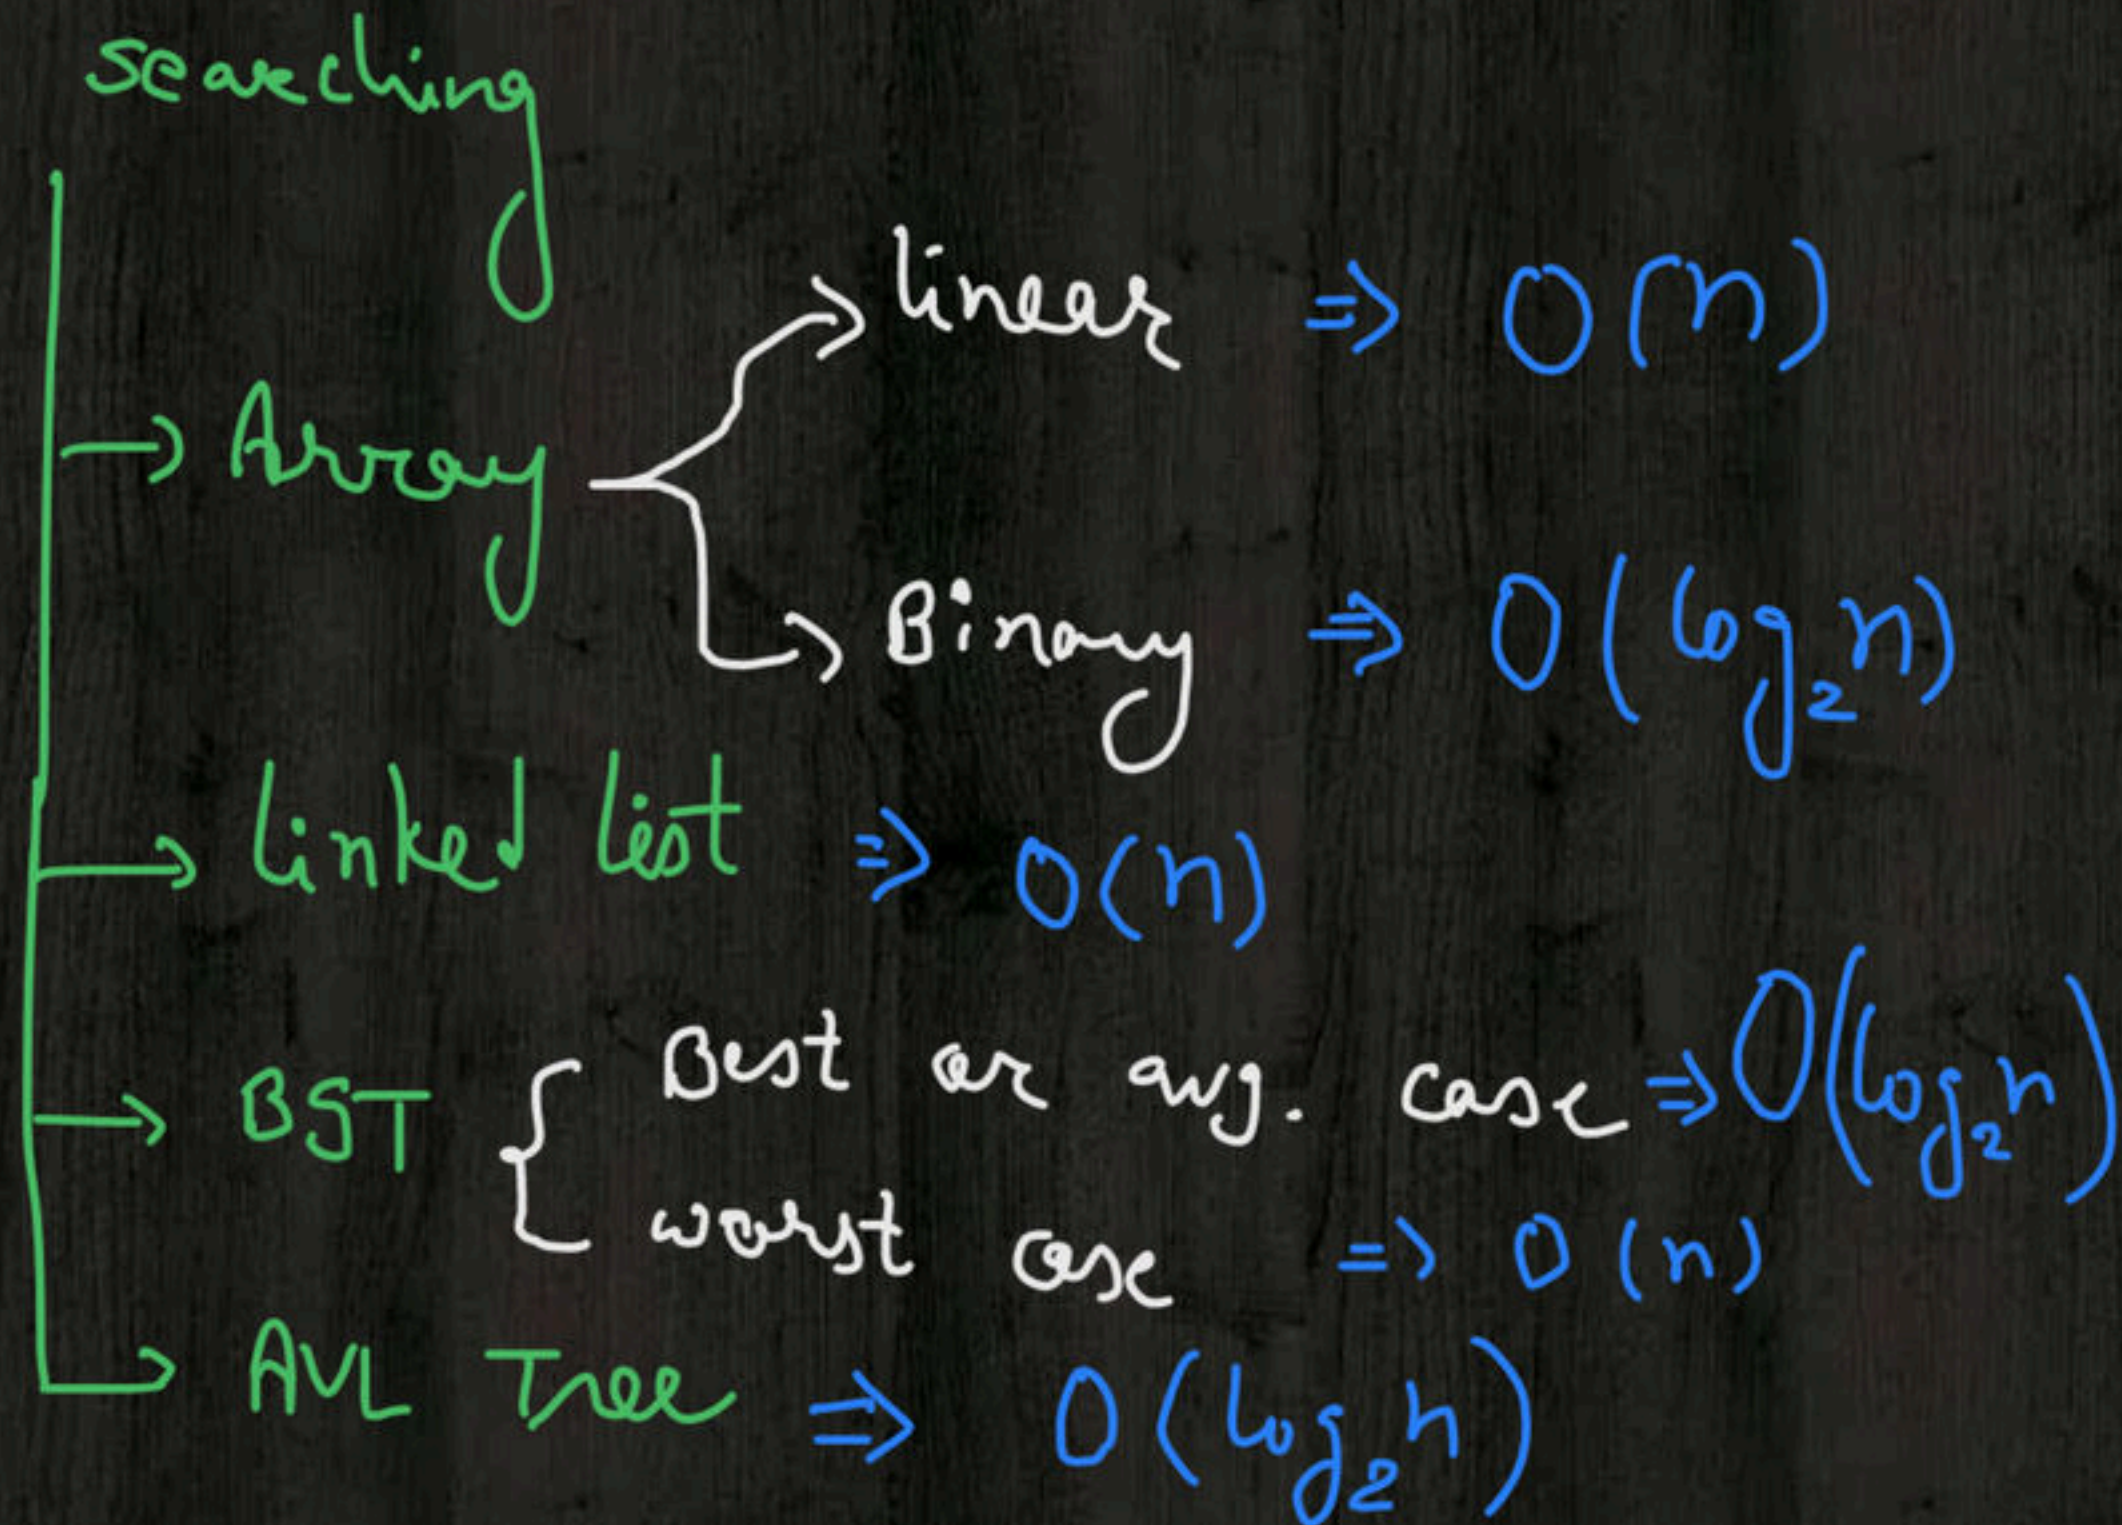 searching
→ Array
→ linear ⇒ O(n)
→ Binary ⇒ O(log₂n)
→ linked list ⇒ O(n)
→ BST { Best or avg. case ⇒ O(log₂n)
worst case ⇒ O(n)
→ AVL Tree ⇒ O(log₂n)